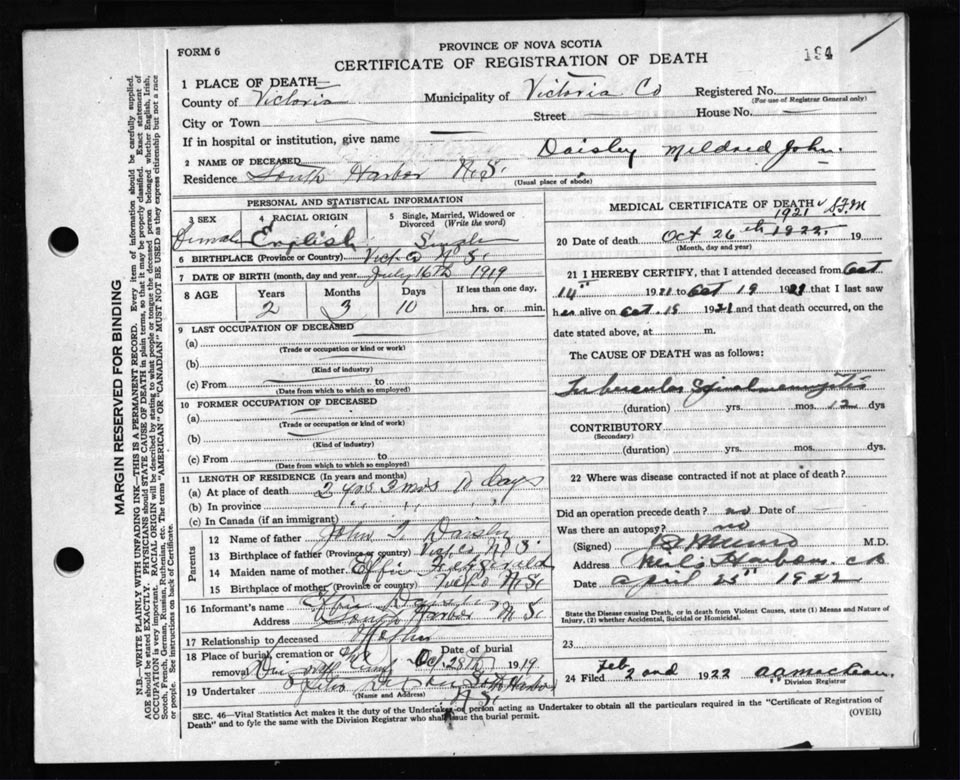 FORM 6
PROVINCE OF NOVA SCOTIA
CERTIFICATE OF REGISTRATION OF DEATH
194
1 PLACE OF DEATH—
County of Victoria Municipality of Victoria Co Registered No.
(For use of Registrar General only)
City or Town Street House No.
If in hospital or institution, give name
2 NAME OF DECEASED Daisley Mildred John.
Residence South Harbor N.S.
(Usual place of abode)
PERSONAL AND STATISTICAL INFORMATION
3 SEX 4 RACIAL ORIGIN 5 Single, Married, Widowed or Divorced (Write the word)
Female English Single
6 BIRTHPLACE (Province or Country) Vict. Co N.S.
7 DATE OF BIRTH (month, day and year) July 16th 1919
8 AGE Years Months Days If less than one day,
2 3 10 hrs. or min.
9 LAST OCCUPATION OF DECEASED
(a)
(Trade or occupation or kind or work)
(b)
(Kind of industry)
(c) From to
(Date from which to which so employed)
10 FORMER OCCUPATION OF DECEASED
(a)
(Trade or occupation or kind of work)
(b)
(Kind of industry)
(c) From to
(Date from which to which so employed)
11 LENGTH OF RESIDENCE (In years and months)
(a) At place of death 2 yrs 3 mos 10 days
(b) In province " " "
(c) In Canada (if an immigrant)
Parents
12 Name of father John T. Daisley
13 Birthplace of father (Province or country) Vict. Co N.S.
14 Maiden name of mother Effie Fitzgerald
15 Birthplace of mother (Province or country) Vict. Co N.S.
16 Informant's name Effie Daisley
Address South Harbor N.S.
17 Relationship to deceased Mother
18 Place of burial, cremation or removal Date of burial
Oct. 28th 1919
19 Undertaker South Harbor
(Name and Address)
N.S.
MEDICAL CERTIFICATE OF DEATH
1921
20 Date of death Oct 26th 1922 19
(Month, day and year)
21 I HEREBY CERTIFY, that I attended deceased from Oct
14" 1921 to Oct 19 1921 that I last saw
her alive on Oct. 15 1921 and that death occurred, on the
date stated above, at m.
The CAUSE OF DEATH was as follows:
Tubercular Spinal meningitis
(duration) yrs. mos. 12 dys
CONTRIBUTORY
(Secondary)
(duration) yrs. mos. dys.
22 Where was disease contracted if not at place of death?
Did an operation precede death? no Date of
Was there an autopsy? no
(Signed) Munro M.D.
Address Neils Harbour, C.B.
Date April 25" 1922
State the Disease causing Death, or in death from Violent Causes, state (1) Means and Nature of
Injury, (2) whether Accidental, Suicidal or Homicidal.
23
24 Filed Feb 2nd 1922
Division Registrar
SEC. 46—Vital Statistics Act makes it the duty of the Undertaker or person acting as Undertaker to obtain all the particulars required in the "Certificate of Registration of
Death" and to fyle the same with the Division Registrar who shall issue the burial permit. (OVER)
MARGIN RESERVED FOR BINDING
N.B—WRITE PLAINLY WITH UNFADING INK—THIS IS A PERMANENT RECORD. Every item of information should be carefully supplied.
AGE should be stated EXACTLY. PHYSICIANS should STATE CAUSE OF DEATH in plain terms, so that it may be properly classified. Exact statement of
OCCUPATION is very important. RACIAL ORIGIN will be described by stating to what people or tongue the deceased person belonged whether English, Irish,
Scotch, French, German, Russian, Ruthenian, etc. The terms "AMERICAN" OR "CANADIAN" MUST NOT BE USED as they express citizenship but not a race
or people. See instructions on back of Certificate.